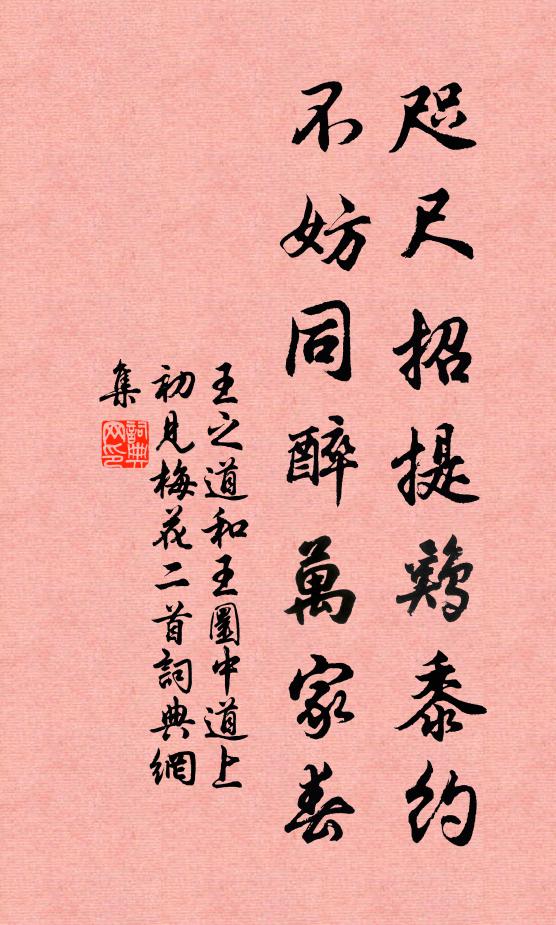 咫尺招提鷄黍約
不妨同醉萬家春
王之道和王圜中道上
初見梅花二首詞典網
集
詞典
网印